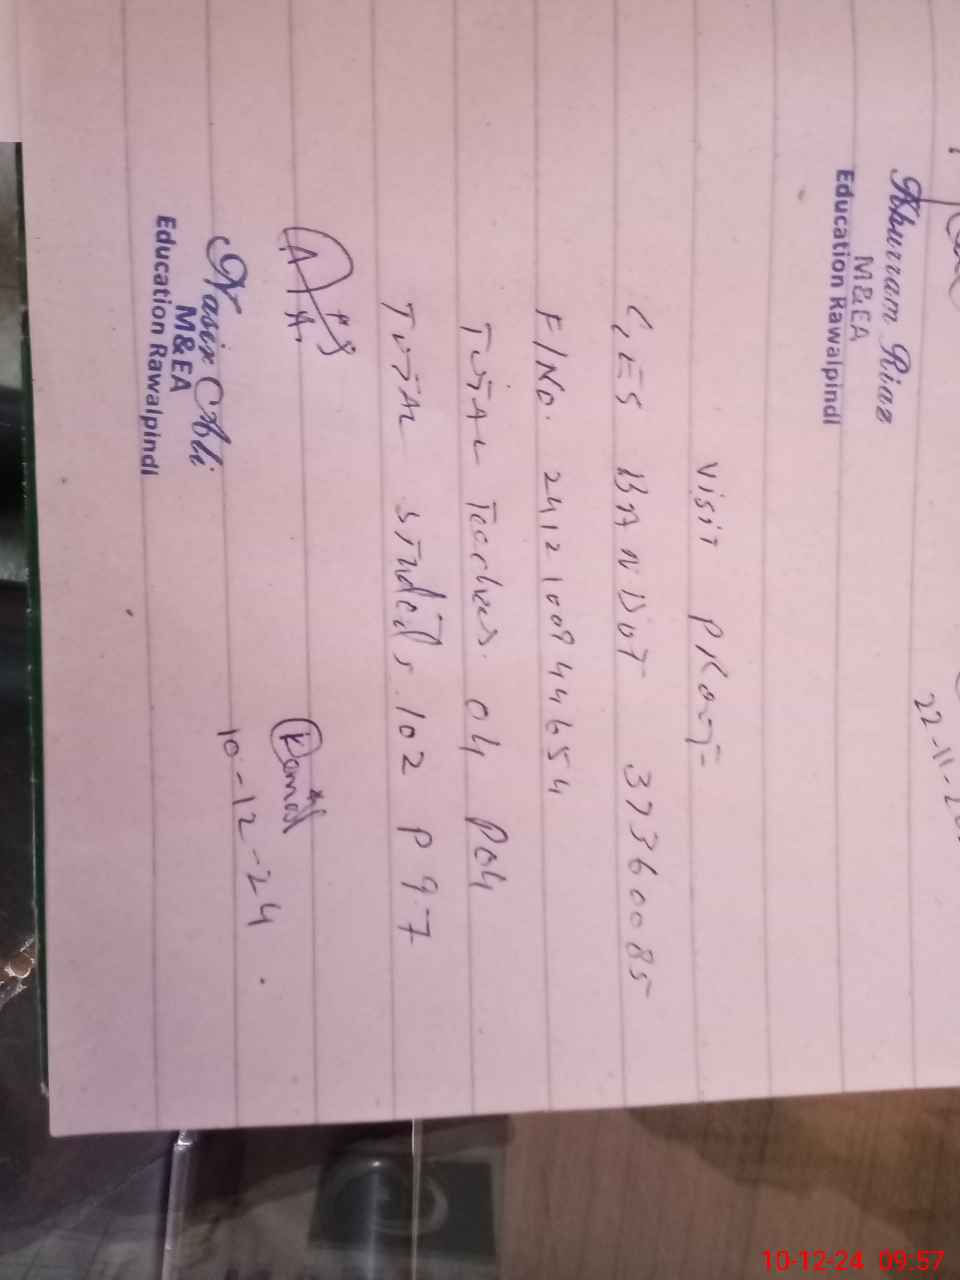 22-11-
Khurram Riaz
M&EA
Education Rawalpindi
Visit
GES BANDOT 37360085
F/No. 24121009446 54
Total Teachers. 04 P04
Total students. 102 P 97
10-12-24
Nasir Ali
M&EA
Education Rawalpindi
10-12-24 09:57